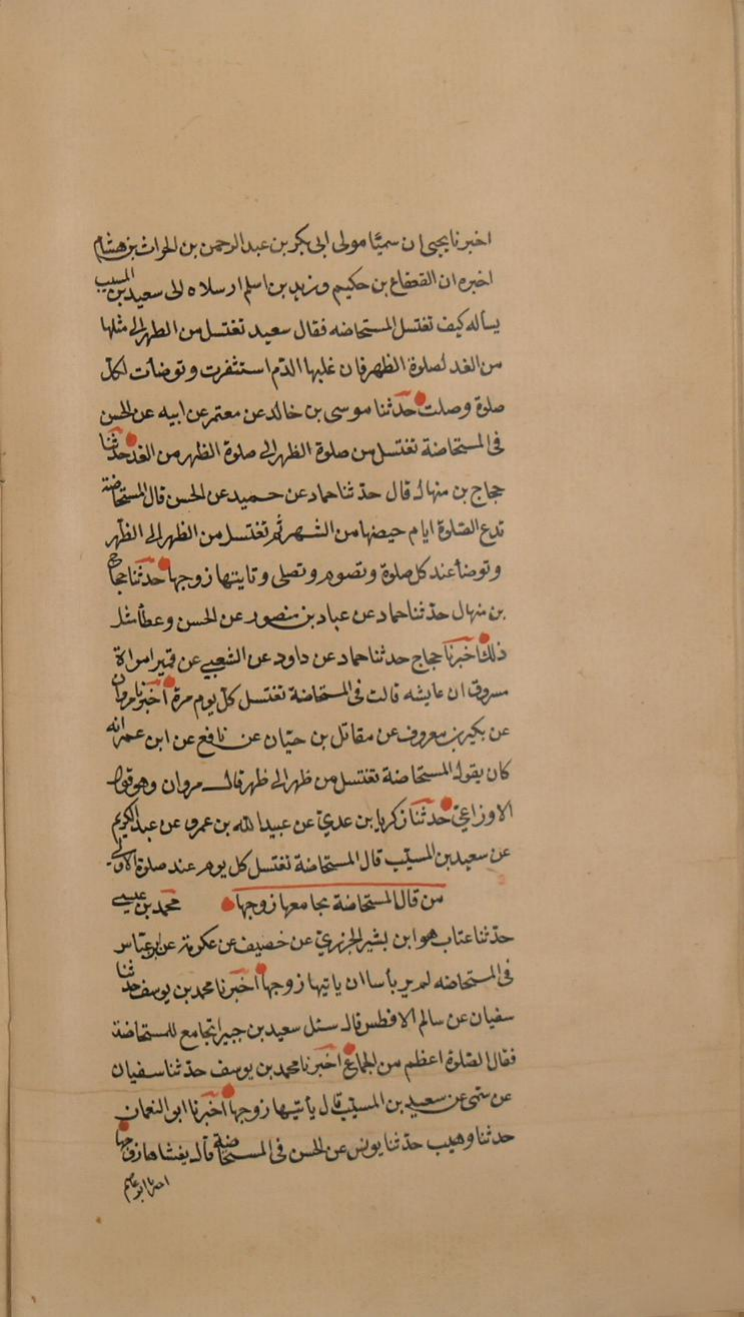 اخبرنا يحيى ان سميًّا مولى ابى بكر بن عبد الرحمن بن الحراث بن هشام
اخبره ان القعقاع بن حكيم وزيد بن اسلم ارسلاه الى سعيد بن المسيب
يساله كيف تغتسل المستحاضه فقال سعيد تغتسل من الطهر الى مثلها
من الغد لصلوة الظهر فان غلبها الدّم استثفرت وتوضأت لكلّ
صلوة وصلت حدثنا موسى بن خالد عن معتمر عن ابيه عن الحسن
فى المستحاضة تغتسل من صلوة الظهر الى صلوة الظهر من الغد حدثنا
حجاج بن منهال قال حدثنا حماد عن حميد عن الحسن قال المستحاضة
تدع الصّلوة ايام حيضها من الشهر ثم تغتسل من الظهر الى الظهر
وتوضأ عند كل صلوة وتصوم وتصلى وتايتها زوجها حدثنا حجاج
بن منهال حدثنا حماد عن عباد بن منصور عن الحسن وعطا مثل
ذلك اخبرنا حجاج حدثنا حماد عن داود عن الشعبي عن قمير امراة
مسروق ان عايشه قالت فى المستحاضة تغتسل كلّ يوم مرة اخبرنا مروان
عن بكير بن معروف عن مقاتل بن حيّان عن نافع عن ابن عمر انه
كان يقول المستحاضة تغتسل من ظهر الى ظهر قال مروان وهو قول
الاوزاعيّ حدثنا زكريا بن عدي عن عبيد الله بن عمرو عن عبد الكريم
عن سعيد بن المسيّب قال المستحاضة تغتسل كل يوم عند صلوة الاولى
من قال المستحاضة يجامعها زوجها محمد بن عيسى
حدثنا عتاب هو ابن بشير الجزريّ عن خصيف عن عكرمة عن ابن عباس
فى المستحاضه لم ير بأسا ان ياتيها زوجها اخبرنا محمد بن يوسف حدثنا
سفيان عن سالم الافطس قال سئل سعيد بن جبير اتجامع المستحاضة
فقال الصّلوة اعظم من الجماع اخبرنا محمد بن يوسف حدثنا سفيان
عن سمى عن سعيد بن المسيّب قال يأتيها زوجها اخبرنا ابو النعمان
حدثنا وهيب حدثنا يونس عن الحسن فى المستحاضة قال يغشاها زوجها